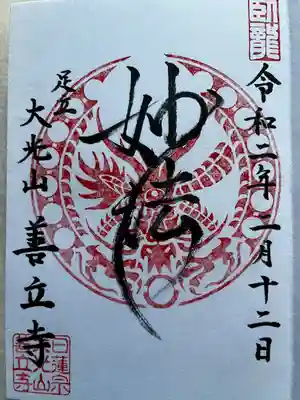 臥龍
令和二年二月十二日
妙法
足立
大光山 善立寺
日蓮宗
大光山
善立寺